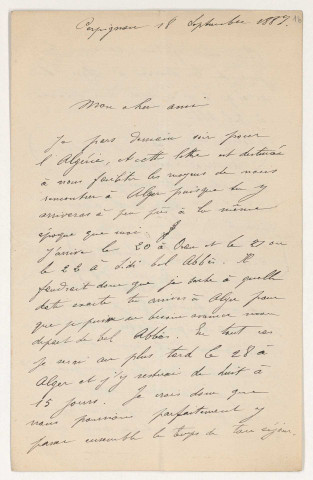 Perpignan 18 Septembre 1887.
Mon cher ami
Je pars demain soir pour
l'Algérie, et cette lettre est destinée
à nous faciliter les moyens de nous
rencontrer à Alger puisque tu y
arriveras à peu près à la même
époque que moi.
J'arrive le 20 à Oran et le 21 ou
le 22 à Sidi bel Abbès. Il
faudrait donc que je sache à quelle
date exacte tu arrives à Alger pour
que je puisse au besoin avancer mon
départ de bel Abbès. En tout cas
je serai au plus tard le 28 à
Alger et j'y resterai de huit à
15 jours. Je crois donc que
nous pourrions parfaitement y
passer ensemble le temps de ton séjour.